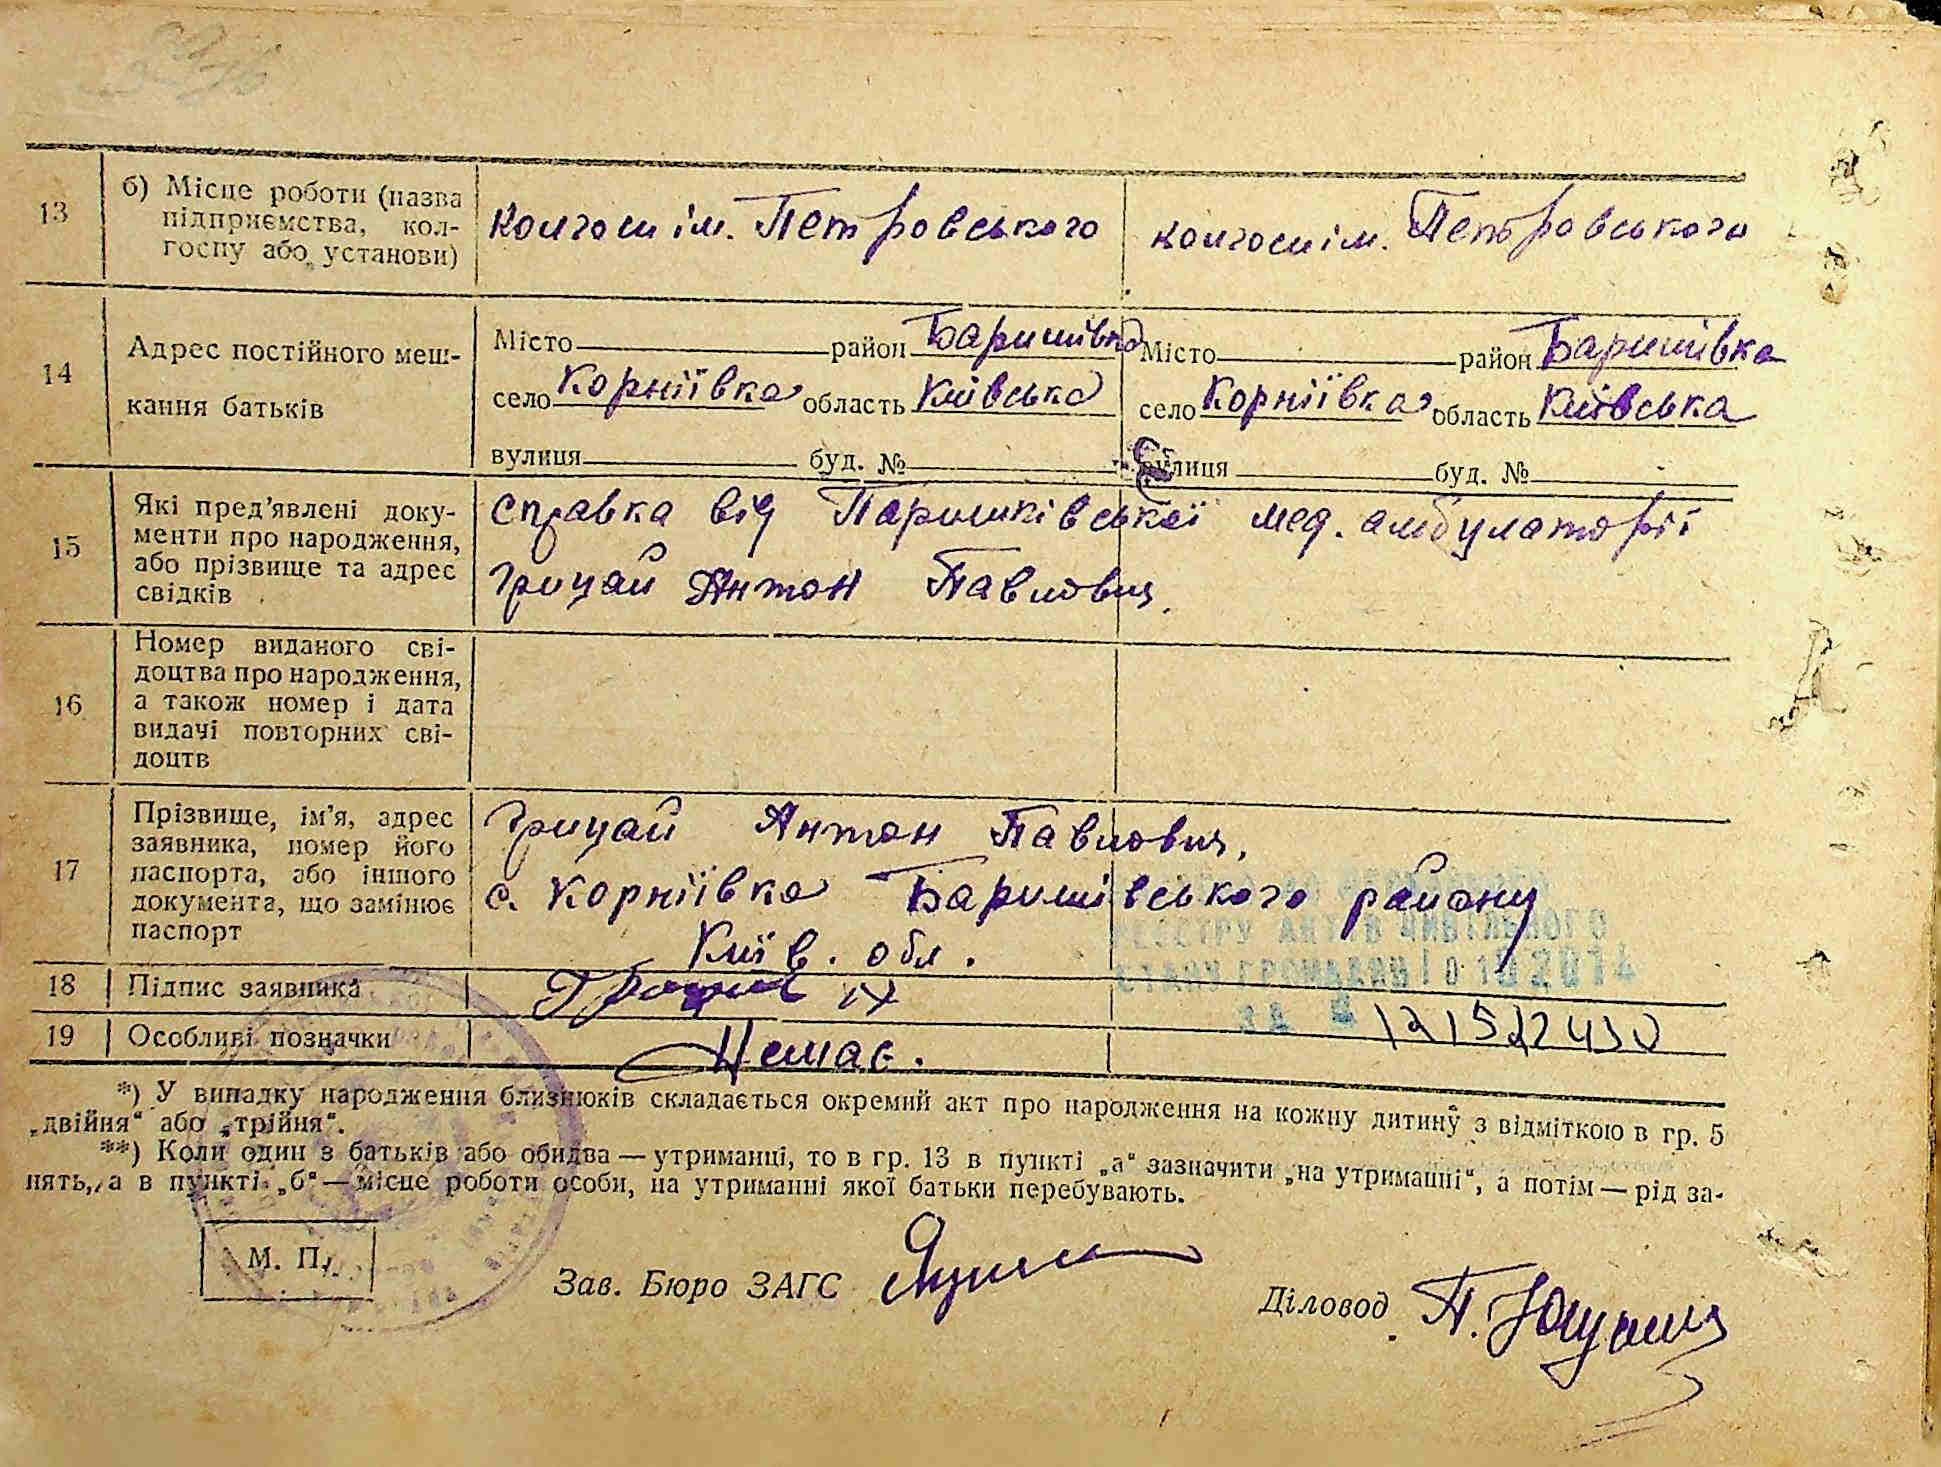 13
б) Місце роботи (назва
підприємства, кол-
госпу або установи)
колгосп ім. Петровського
колгосп ім. Петровського
14
Адрес постійного меш-
кання батьків
Місто район Баришівка
село Корніївка область Київська
вулиця буд. №
Місто район Баришівка
село Корніївка область Київська
вулиця буд. №
15
Які пред'явлені доку-
менти про народження,
або прізвище та адрес
свідків
Справка від Паришківської мед. амбулаторії
Грицай Антон Павлович.
16
Номер виданого сві-
доцтва про народження,
а також номер і дата
видачі повторних сві-
доцтв
17
Прізвище, ім'я, адрес
заявника, номер його
паспорта, або іншого
документа, що замінює
паспорт
Грицай Антон Павлович,
с. Корніївка Баришівського району
Київ. обл.
РЕЄСТРУ АКТІВ ЦИВІЛЬНОГО
СТАНУ ГРОМАДЯН
ЗА №
18
Підпис заявника
19
Особливі позначки
Немає.
*) У випадку народження близнюків складається окремий акт про народження на кожну дитину з відміткою в гр. 5
„двійня“ або „трійня“.
**) Коли один з батьків або обидва — утриманці, то в гр. 13 в пункті „а“ зазначити „на утриманні“, а потім — рід за-
нять, а в пункті „б“ — місце роботи особи, на утриманні якої батьки перебувають.
М. П.
Зав. Бюро ЗАГС
Діловод